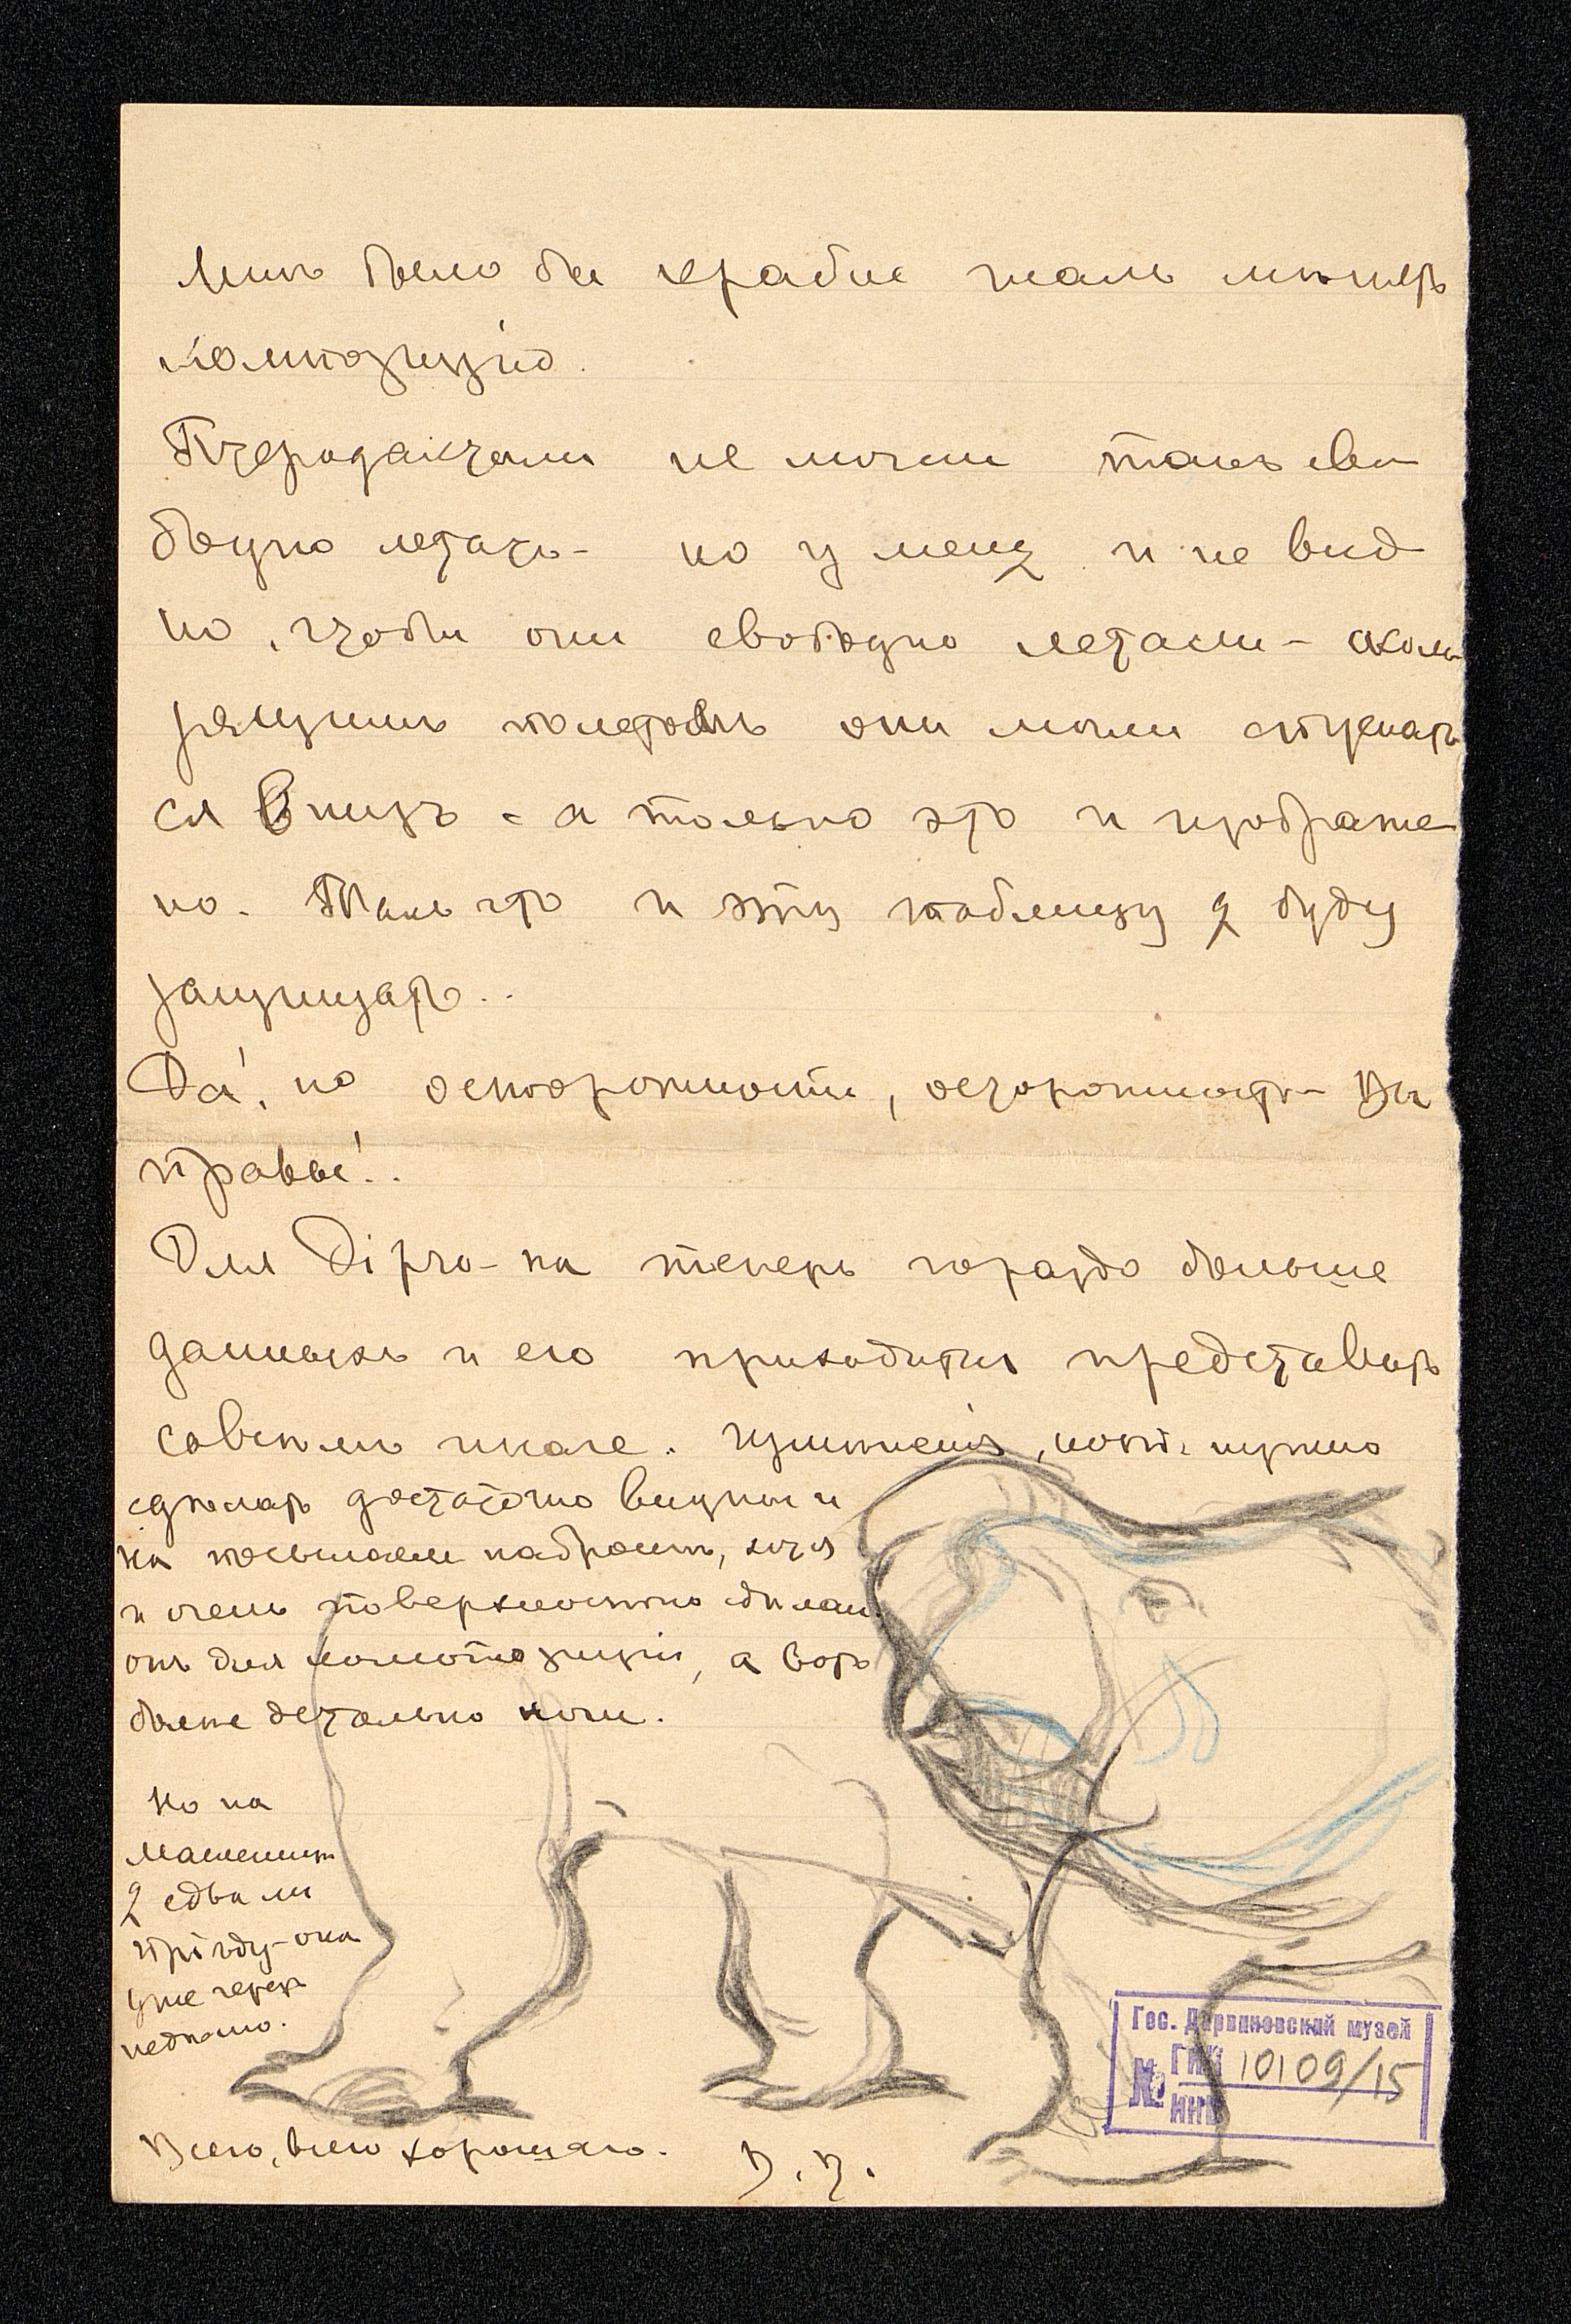 Мнѣ было бы крайне жаль мѣнять
композицію.
Птеродактили не могли такъ сво-
бодно летать - но у меня и не вид-
но, чтобы они свободно летали -
полетомъ они могли спускать
ся внизъ - а только это и изображе-
но. Такъ что и эту таблицу я буду
защищать..
Да, но осторожности, осторожность - Вы
правы!..
Для Dipro-на теперь гораздо больше
данныхъ и его приходится представить
совсѣмъ иначе. Измѣненія, нужно
сдѣлать достаточно видныя и
посылаемъ набросокъ, хотя
и очень поверхностно сдѣлан.
онъ для композиціи, а вотъ
болѣе детально ноги.
Но на
Машенькѣ
я едва ли
пріѣду - она
уже через
недѣлю.
Всего, всего хорошаго.
В. В.
Гос. Дарвиновский музей
№ ГИК 10109/15
ИНВ